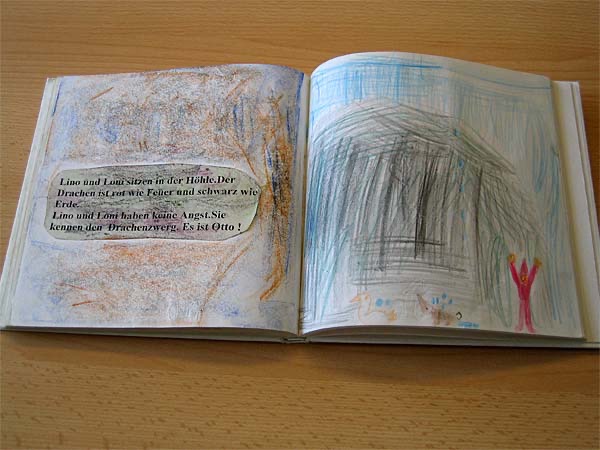 Lino und Loni sitzen in der Höhle.Der
Drachen ist rot wie Feuer und schwarz wie
Erde.
Lino und Loni haben keine Angst.Sie
kennen den Drachenzwerg. Es ist Otto !